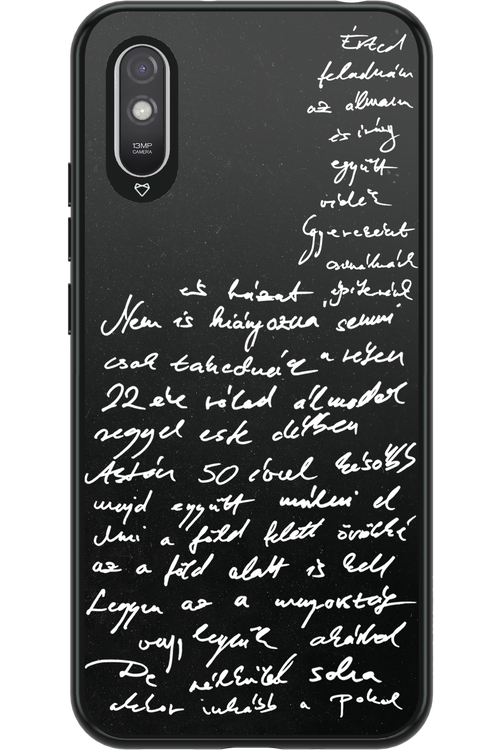 13MP
CAMERA
Érted
feladnám
az álmaim
és irány
együtt
vidék
Gyerekeket
csinálnánk
és házat építenénk
Nem is hiányozna semmi
csak takednék a részem
22 éve rólad álmodok
reggel este délben
Aztán 50 évvel később
majd együtt múlni el
Ami a föld felett örökké
az a föld alatt is kell
Legyen az a mennyország
vagy legyünk akárhol
De nélküled soha
akkor inkább a pokol